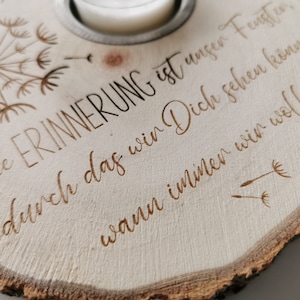 ERINNERUNG ist unser Fenster,
durch das wir Dich sehen
wann immer wir